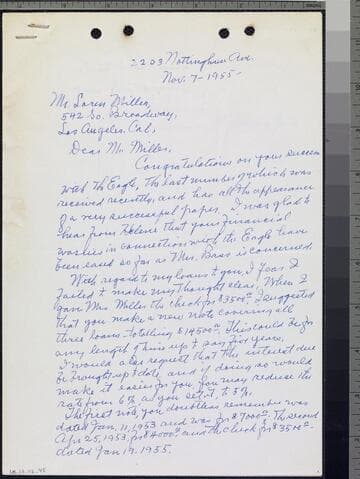 2203 Nottingham Ave.
Nov. 7-1955-
Mr. Loren Miller,
542 So. Broadway,
Los Angeles. Cal,
Dear Mr. Miller,
Congratulations on your success
with the Eagle, the last number of which was
received recently, and has all the appearance
of a very successful paper. I was glad to
hear from that your financial
worries in connection with the Eagle have
been eased so far as Mrs. Bass is concerned.
With regard to my loans to you, I fear I
failed to make my thought clear. When I
gave Mrs. Miller the check for $3500.- I suggested
that you make a new note covering all
three loans- totalling $14500.- This could be for
any length of time up to say five years.
I would also request that the interest due
be brought up to date, and if doing so would
make it easier for you, you may reduce the
rate from 6% as you set it, to 5%.
The first note, you doubtless remember was
dated Jan. 11, 1953 and was for $7000.- The second
Apr 25, 1953, for $4000.- and the check for $3500.-
dated Jan 19. 1955.